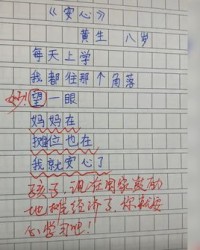 《安心》
黄生 八岁
每天上学
我都往那个角落
妙! 望一眼
妈妈在
摊位也在
我就安心了
孩子,现在国家鼓励
地摊经济了,你就安
心学习吧!